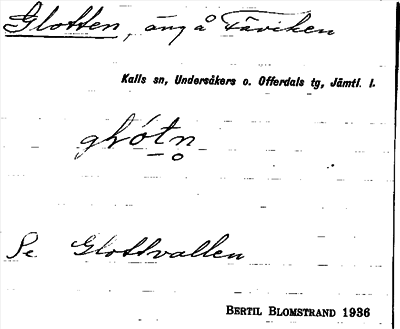 Glotten, äng å Fäviken
Kalls sn, Undersåkers o. Offerdals tg, Jämtl. l.
glótn̥
Se Glottvallen
BERTIL BLOMSTRAND 1936